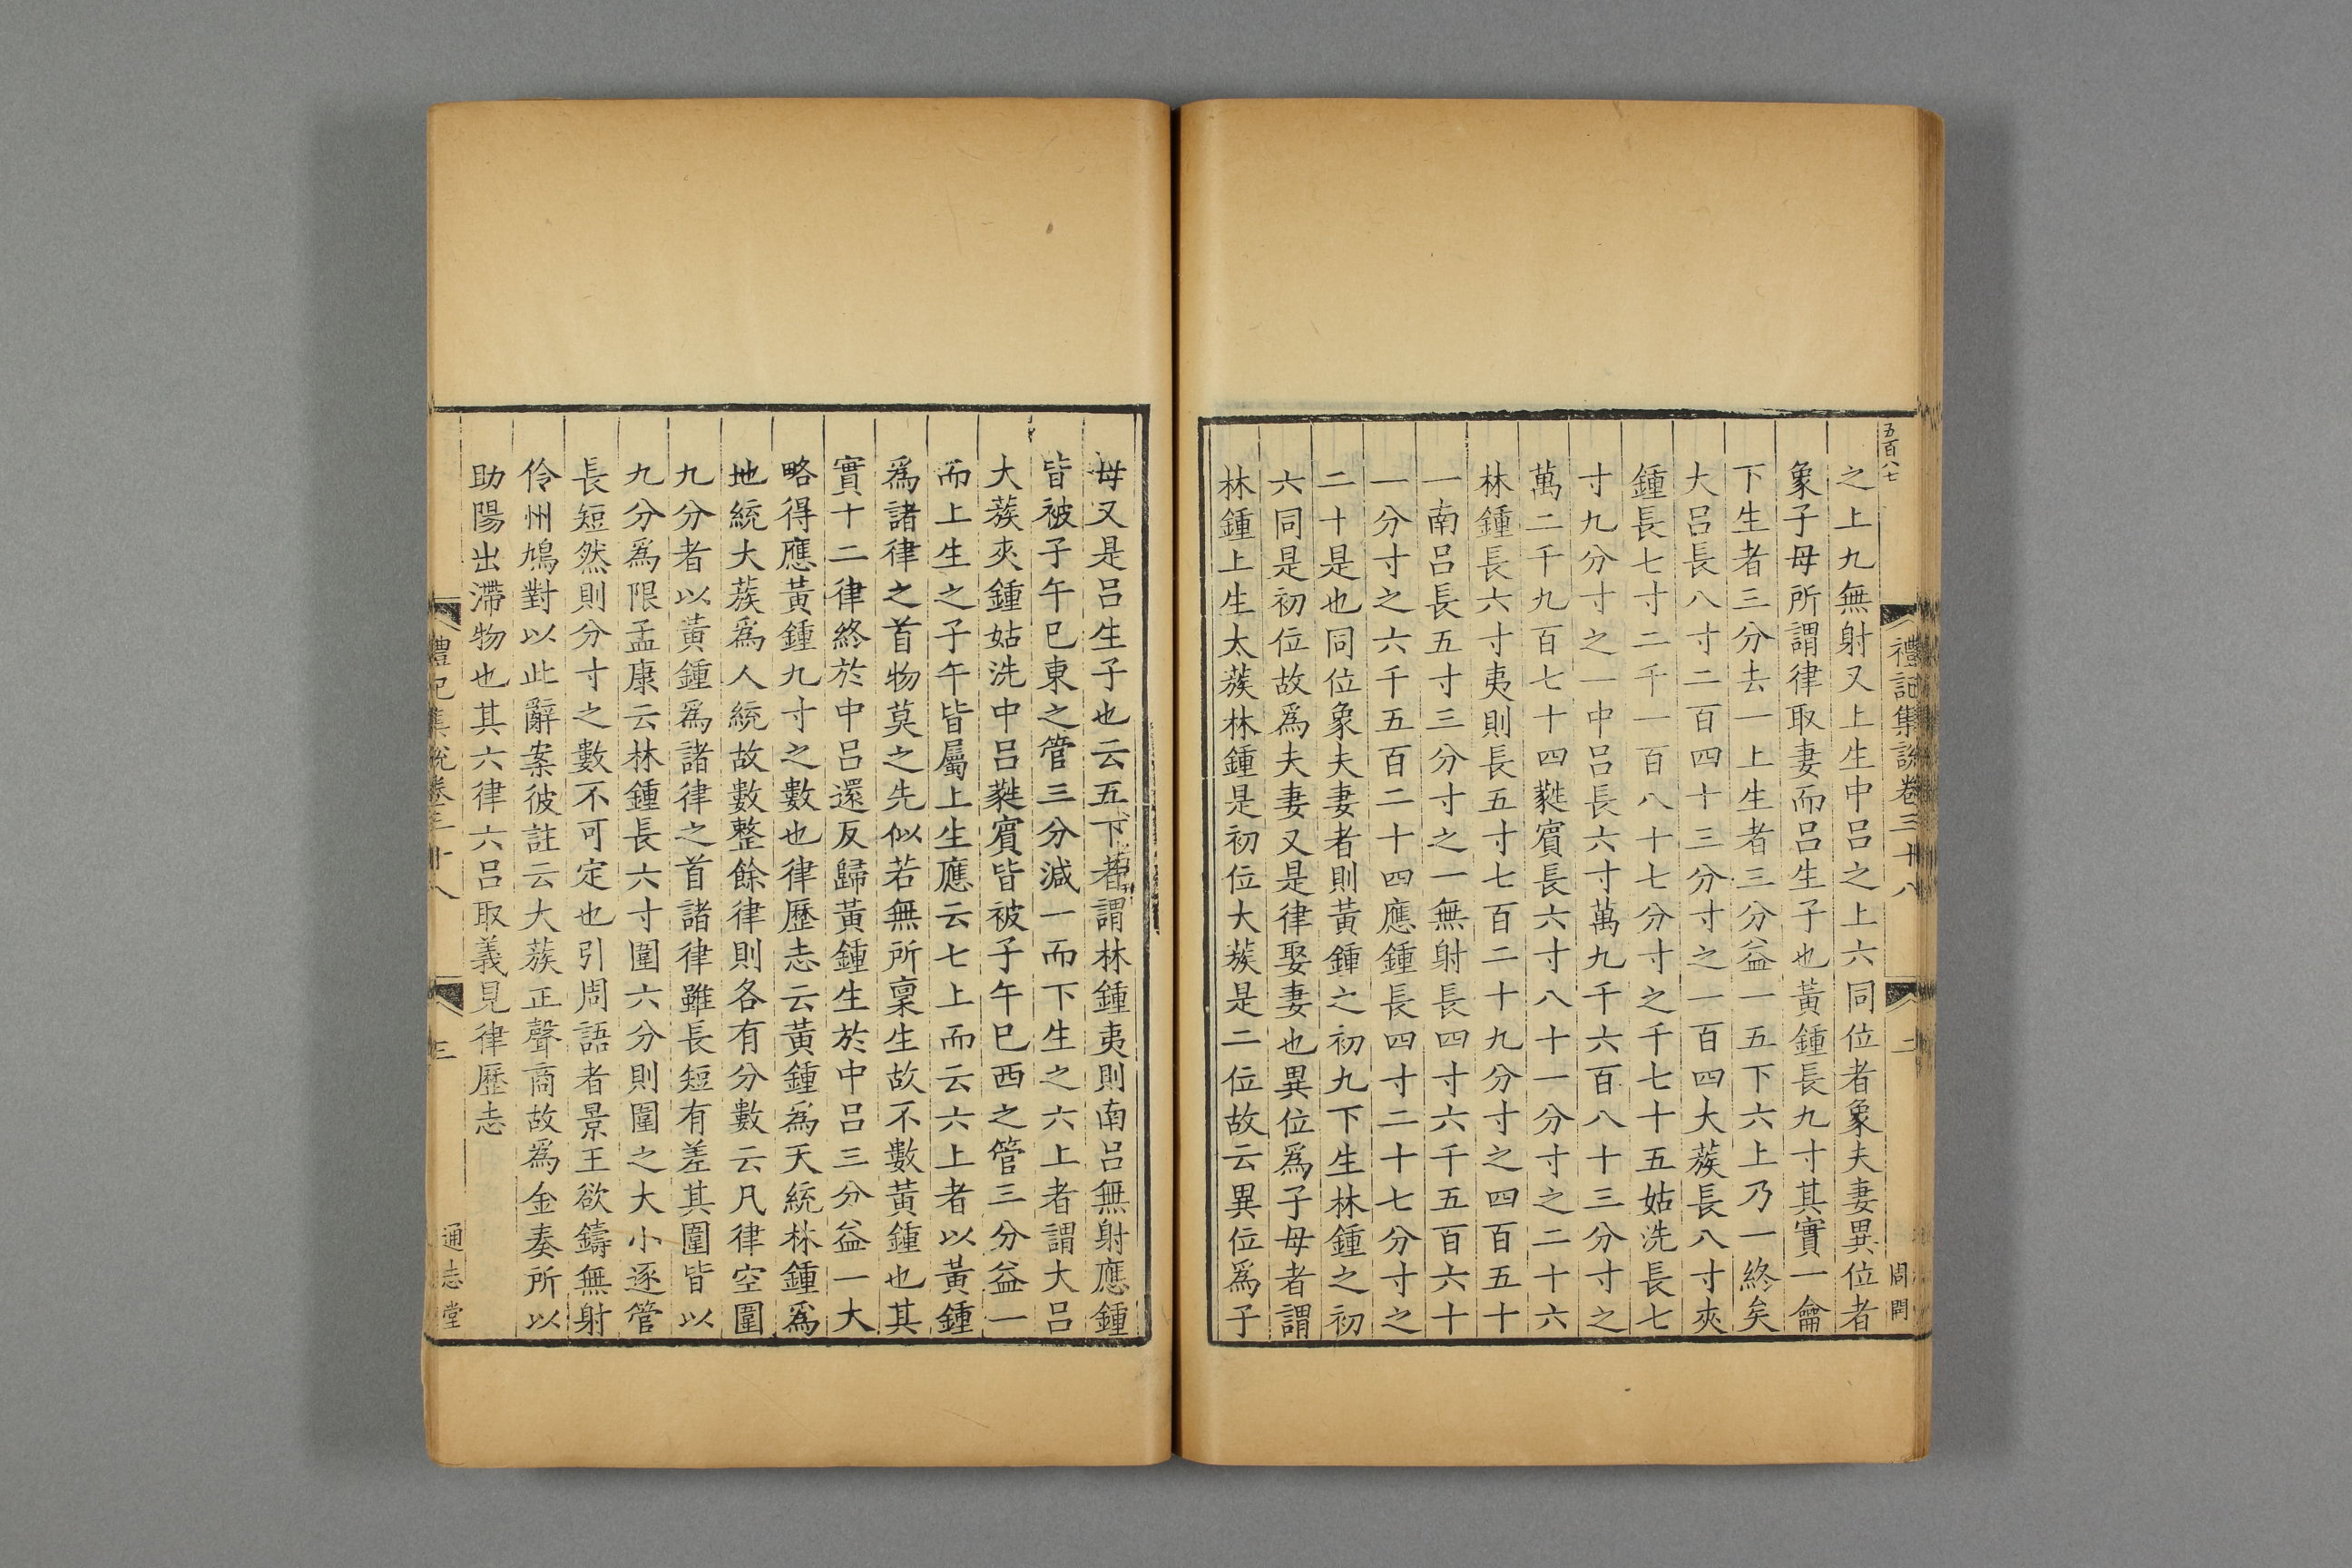 五百八七
禮記集說卷三十八
二
周開
之上九無射又上生中呂之上六同位者象夫妻異位者
象子母所謂律取妻而呂生子也黃鍾長九寸其實一龠
下生者三分去一上生者三分益一五下六上乃一終矣
大呂長八寸二百四十三分寸之一百四大蔟長八寸夾
鍾長七寸二千一百八十七分寸之千七十五姑洗長七
寸九分寸之一中呂長六寸萬九千六百八十三分寸之
萬二千九百七十四蕤賓長六寸八十一分寸之二十六
林鍾長六寸夷則長五寸七百二十九分寸之四百五十
一南呂長五寸三分寸之一無射長四寸六千五百六十
一分寸之六千五百二十四應鍾長四寸二十七分寸之
二十是也同位象夫妻者則黃鍾之初九下生林鍾之初
六同是初位故爲夫妻又是律娶妻也異位爲子母者謂
林鍾上生太蔟林鍾是初位大蔟是二位故云異位爲子
母又是呂生子也云五下者謂林鍾夷則南呂無射應鍾
皆被子午巳東之管三分減一而下生之六上者謂大呂
大蔟夾鍾姑洗中呂蕤賓皆被子午巳西之管三分益一
而上生之子午皆屬上生應云七上而云六上者以黃鍾
爲諸律之首物莫之先似若無所稟生故不數黃鍾也其
實十二律終於中呂還反歸黃鍾生於中呂三分益一大
略得應黃鍾九寸之數也律歷志云黃鍾爲天統林鍾爲
地統大蔟爲人統故數整餘律則各有分數云凡律空圍
九分者以黃鍾爲諸律之首諸律雖長短有差其圍皆以
九分爲限孟康云林鍾長六寸圍六分則圍之大小逐管
長短然則分寸之數不可定也引周語者景王欲鑄無射
伶州鳩對以此辭案彼註云大蔟正聲商故爲金奏所以
助陽出滯物也其六律六呂取義見律歷志
禮記集說卷三十八
三
通志堂